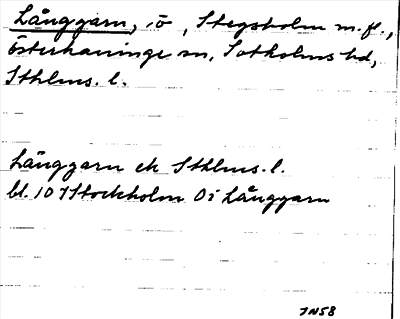 Långgarn, ö, Stegsholm m.fl.,
Österhaninge sn, Sotholms hd,
Sthlms. l.
Långgarn ek Sthlms. l.
bl. 107 Stockholm Oi Långgarn
JN58